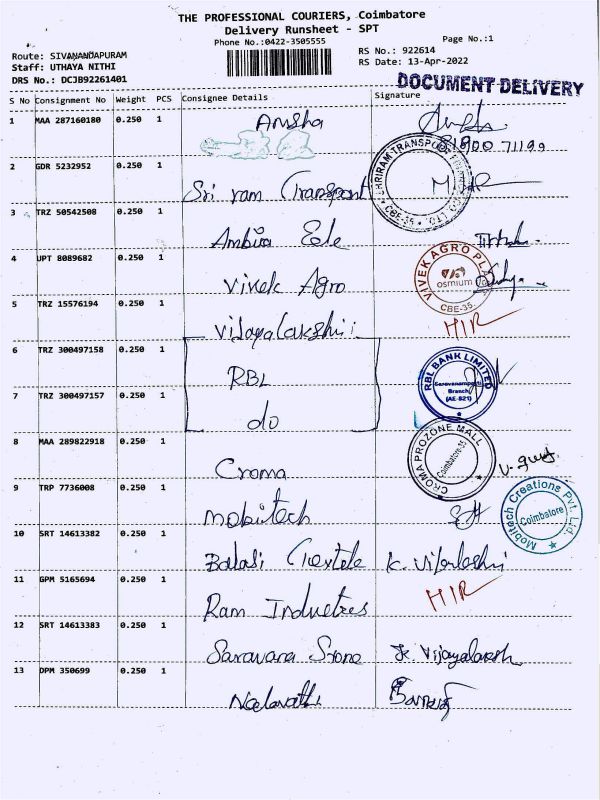 THE PROFESSIONAL COURIERS, Coimbatore
Delivery Runsheet - SPT
Phone No.:0422-3505555
Page No.:1
Route: SIVANANDAPURAM
Staff: UTHAYA NITHI
DRS No.: DCJB92261401
RS No.: 922614
RS Date: 13-Apr-2022
DOCUMENT DELIVERY
S No Consignment No Weight PCS Consignee Details Signature
1 MAA 287160180 0.250 1 Anusha
81900 71199
2 GDR 5232952 0.250 1 Sri ram Transport
SHRIRAM TRANSPORT CBE-35
3 TRZ 50542508 0.250 1 Ambica
4 UPT 8089682 0.250 1 Vivek Agro
VIVEK AGRO osmium CBE-35.
5 TRZ 15576194 0.250 1 Vijayalakshmi HIR
6 TRZ 300497158 0.250 1 RBL
RBL BANK LIMITED Saravanampatti Branch (AE-821)
7 TRZ 300497157 0.250 1 do
8 MAA 289822918 0.250 1 Croma
CROMA PROZONE MALL Coimbatore-35
9 TRP 7736008 0.250 1 Mobitech
Mobitech Creations Pvt. Ltd. Coimbatore
10 SRT 14613382 0.250 1 Balaji
11 GPM 5165694 0.250 1 Ram HIR
12 SRT 14613383 0.250 1 Saravana Store
13 DPM 350699 0.250 1 Neelavathi